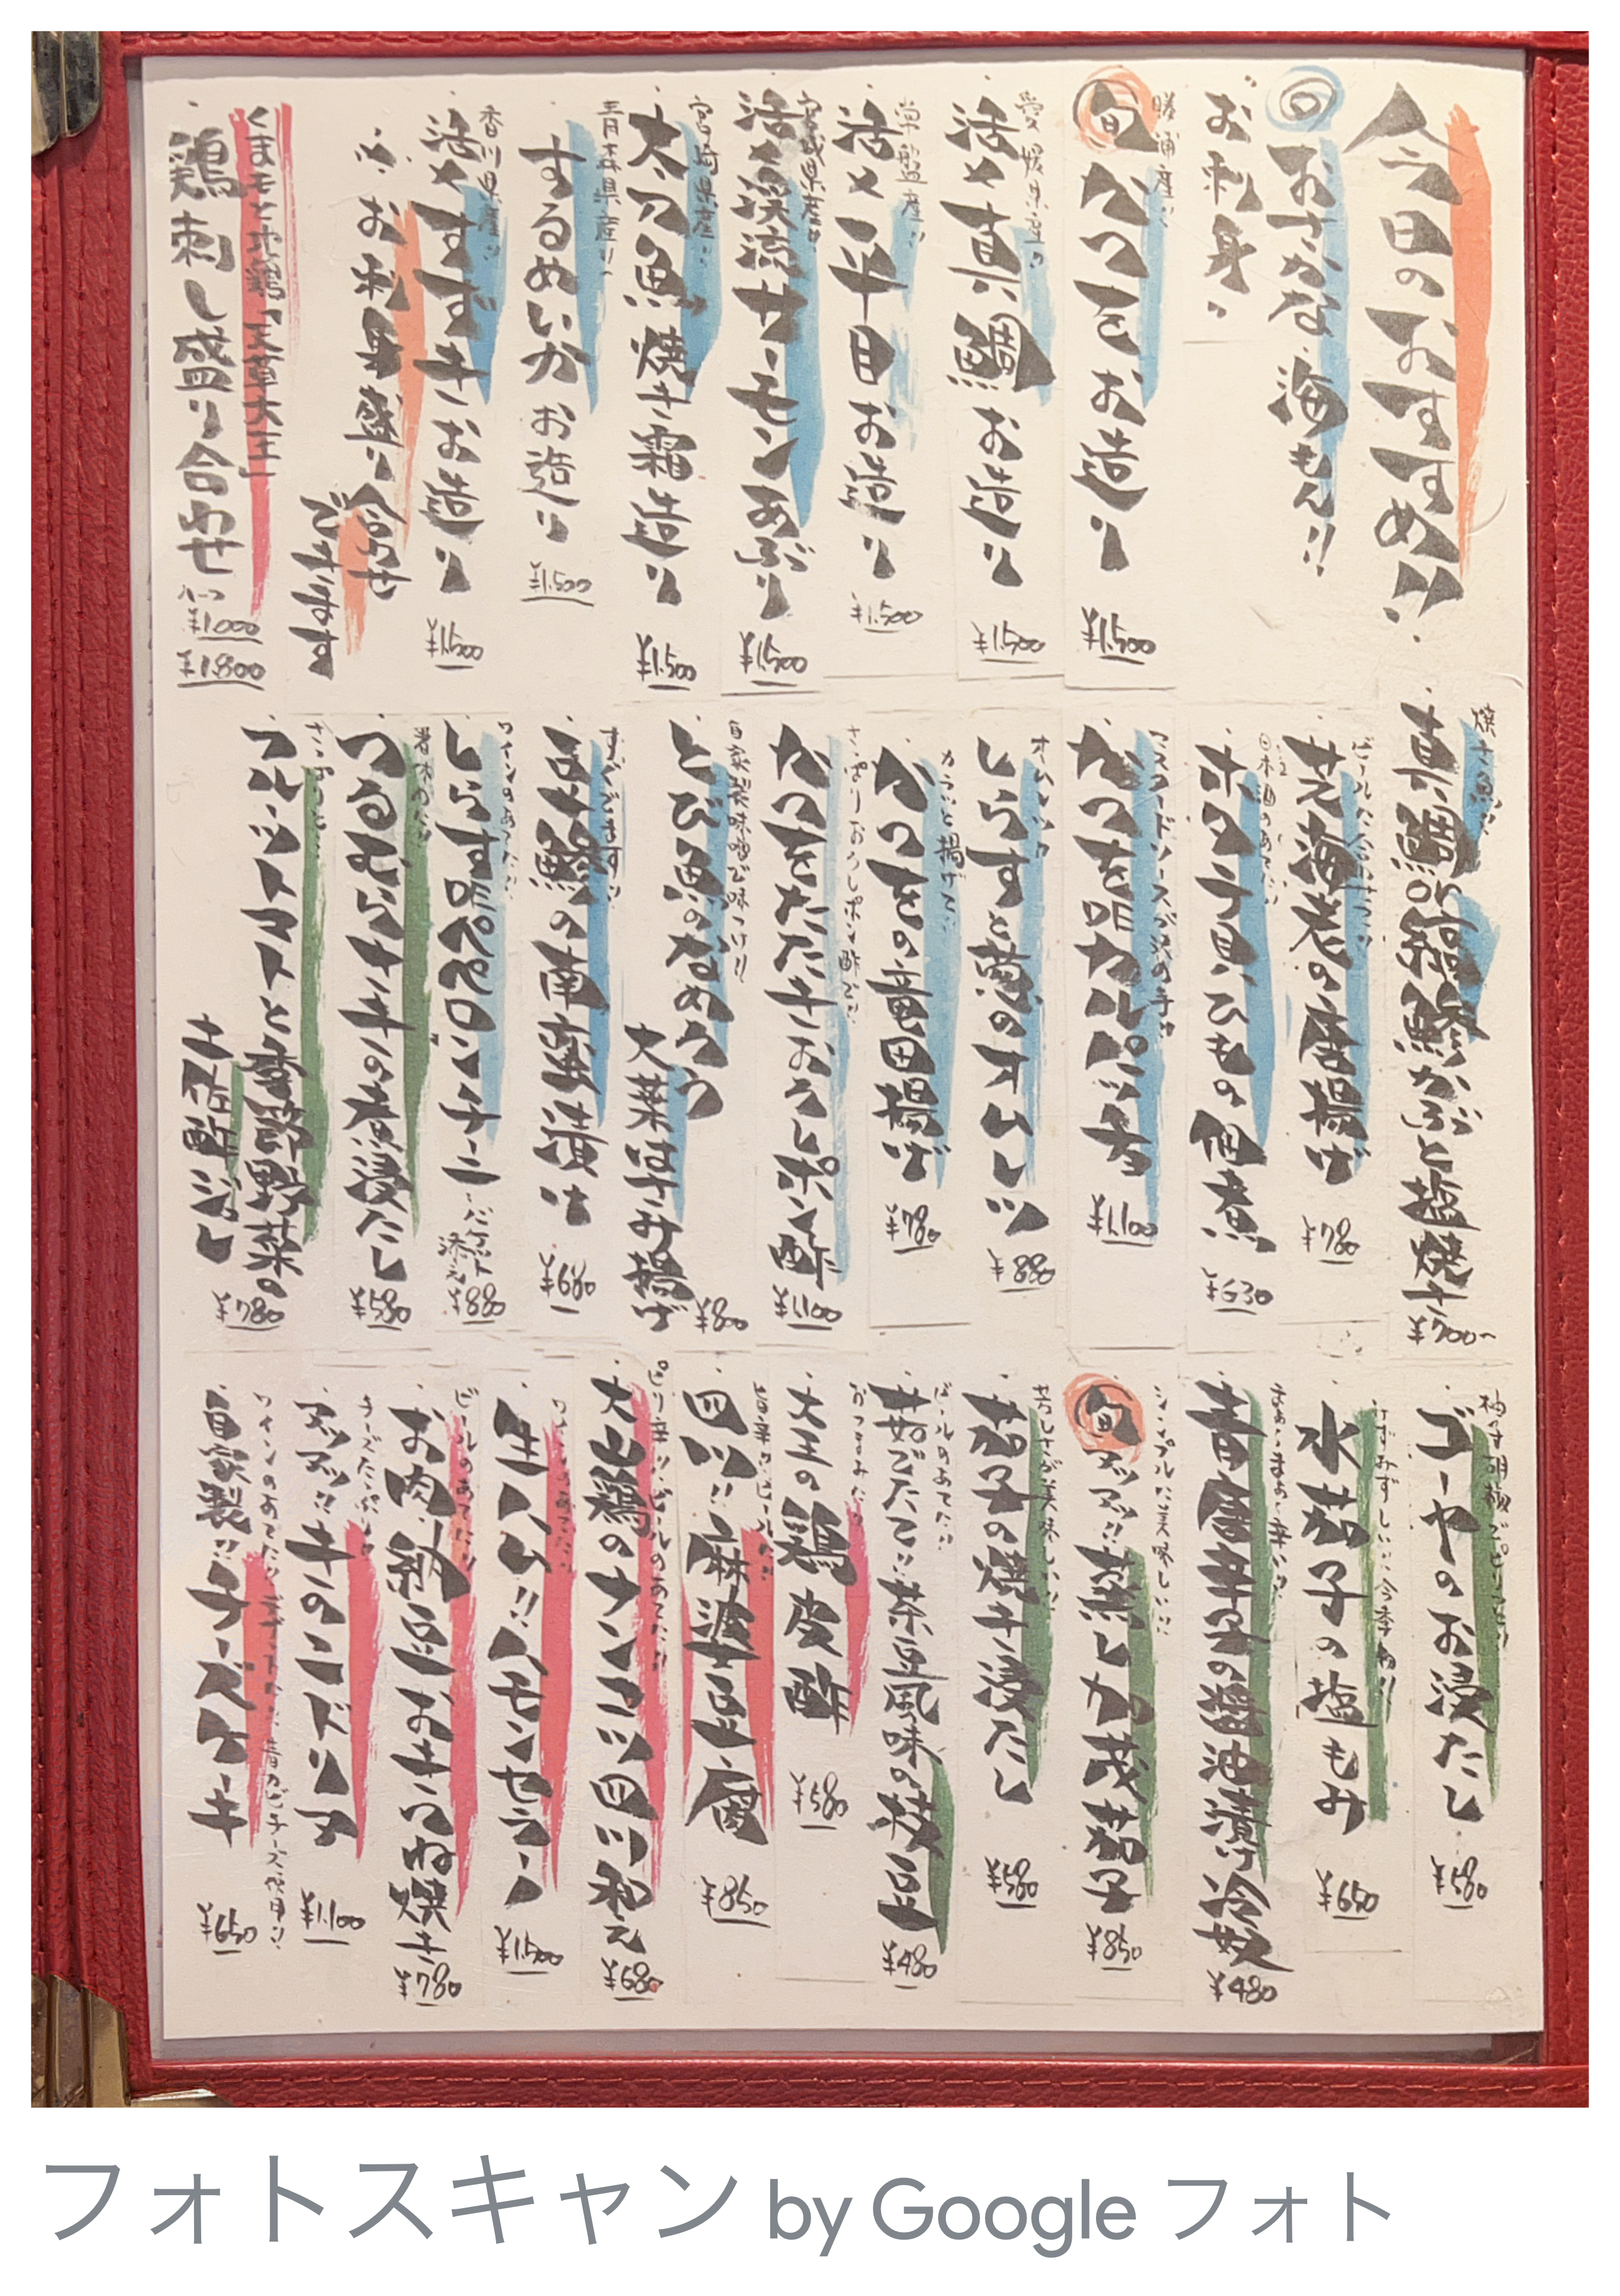 今日のおすすめ!!
おさかな 海もん!!
お刺身
勝浦産!!
旬 かつを お造り ¥1,500
愛媛県産!!
活〆 真鯛 お造り ¥1,500
常磐産!!
活〆 平目 お造り ¥1,500
宮城県産!!
活〆 渓流サーモン あぶり ¥1,500
宮崎県産!!
太刀魚 焼き霜造り ¥1,500
青森県産!!
するめいか お造り ¥1,500
香川県産!!
活〆 すずき お造り ¥1,500
お刺身盛り合わせ
できます
くまもと地鶏「天草大王」
鶏刺し盛り合わせ
¥1,000
¥1,800
焼き魚!!
真鯛or黒鯛かぶと塩焼き ¥700〜
ビールに合せて!!
芝海老の唐揚げ ¥780
日本酒のあてに!!
ホタテ貝ひもの佃煮 ¥630
マスタードソースが決め手!!
かつを出カルパッチョ ¥1,100
オムレツ!!
しらすと葱のオムレツ ¥880
カラッと揚げて!!
かつをの竜田揚げ ¥780
さっぱりおろしポン酢で!!
かつをたたきおろしポン酢 ¥1,100
自家製味噌で味つけ!!
とび魚のなめろう
大葉はさみ揚げ ¥800
すぐでます!!
豆鯵の南蛮漬け ¥680
ワインのあてに!!
しらす出ペペロンチーニ バケット添え ¥880
箸休めに!!
つるむらさきの煮浸たし ¥580
さっぱりと…
フルーツトマトと季節野菜の
土佐酢ジュレ ¥780
柚子胡椒でピリッと!!
ゴーヤのお浸たし ¥580
みずみずしい!!今季初!!
水茄子の塩もみ ¥650
まぁ!まぁ!辛い!!
青唐辛子の醤油漬け冷奴 ¥480
シンプルに美味しい!!
旬 アツアツ!!蒸し加茂茄子 ¥850
茄子の焼き浸たし ¥580
ビールのあてに!!
茹でたて!!茶豆風味の枝豆 ¥480
おつまみに!!
大王の鶏皮酢 ¥580
旨辛!!ビール!!
四川!!麻婆豆腐 ¥850
ピリ辛!!ビールのあてに!!
大山鶏のナンコツ四川和え ¥680
生ハム!!ハモンセラーノ ¥1,500
ビールのあてに!!
お肉!!納豆おきつね焼き ¥780
チーズたっぷり
アツアツ!!キノコドリア ¥1,100
ワインのあてに!!デザートに!!青カビチーズ使用!!
自家製!!チーズケーキ ¥650
フォトスキャン by Google フォト